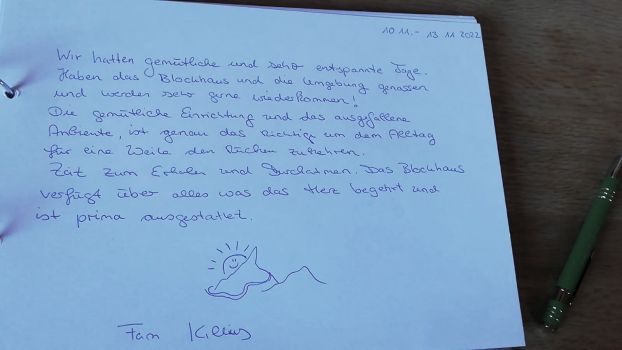 10.11. - 13.11.2022
Wir hatten gemütliche und sehr entspannte Tage.
Haben das Blockhaus und die Umgebung genossen
und werden sehr gerne wiederkommen!
Die gemütliche Einrichtung und das ausgefallene
Ambiente, ist genau das Richtige um dem Alltag
für eine Weile den Rücken zukehren.
Zeit zum Erholen und Durchatmen. Das Blockhaus
verfügt über alles was das Herz begehrt und
ist prima ausgestattet.
Fam